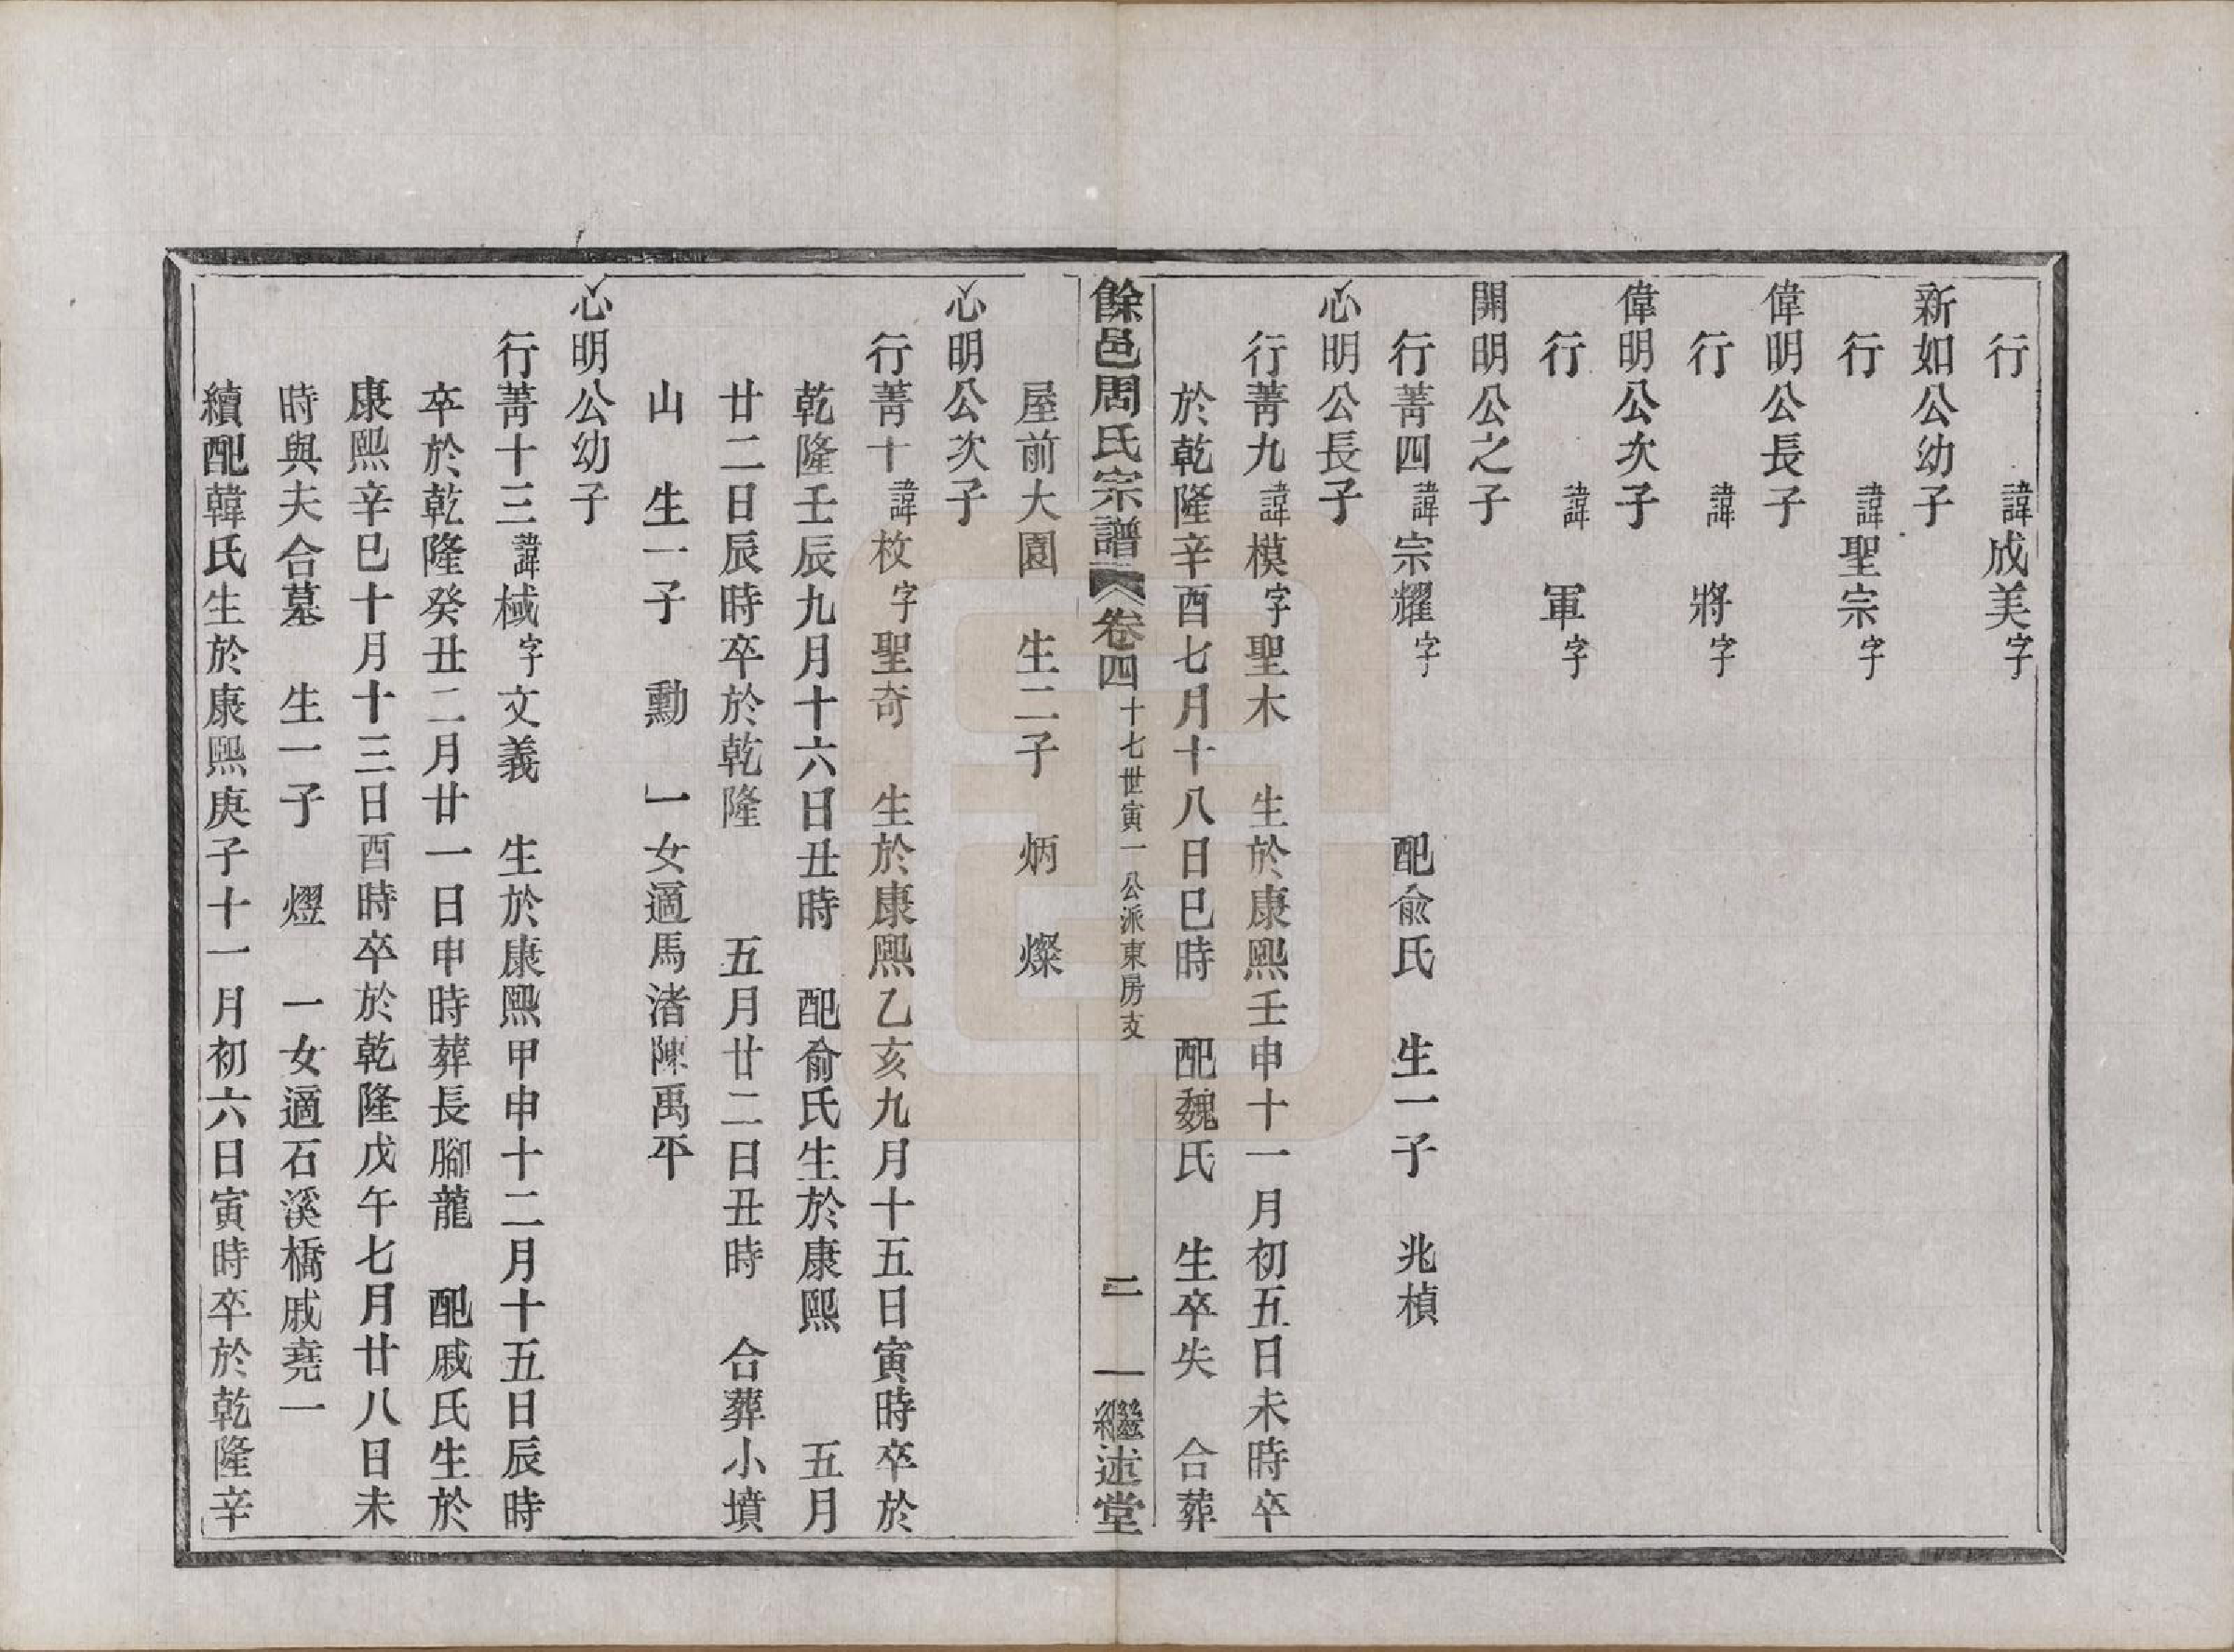 行　諱成美字
新如公幼子
行　諱聖宗字
偉明公長子
行　諱　將字
偉明公次子
行　諱　軍字
開明公之子
行菁四諱宗耀字　配俞氏　生一子　兆楨
心明公長子
行菁九諱模字聖木　生於康熙壬申十一月初五日未時卒
於乾隆辛酉七月十八日巳時　配魏氏　生卒失　合葬
餘邑周氏宗譜　卷四　十七世寅一公派東房支　二　繼述堂
屋前大園　生二子　炳　燦
心明公次子
行菁十諱枚字聖奇　生於康熙乙亥九月十五日寅時卒於
乾隆壬辰九月十六日丑時　配俞氏生於康熙　五月
廿二日辰時卒於乾隆　五月廿二日丑時　合葬小墳
山　生一子　勳　一女適馬渚陳禹平
心明公幼子
行菁十三諱棫字文義　生於康熙甲申十二月十五日辰時
卒於乾隆癸丑二月廿一日申時葬長腳龍　配戚氏生於
康熙辛巳十月十三日酉時卒於乾隆戊午七月廿八日未
時與夫合墓　生一子　熤　一女適石溪橋戚堯一
續配韓氏生於康熙庚子十一月初六日寅時卒於乾隆辛